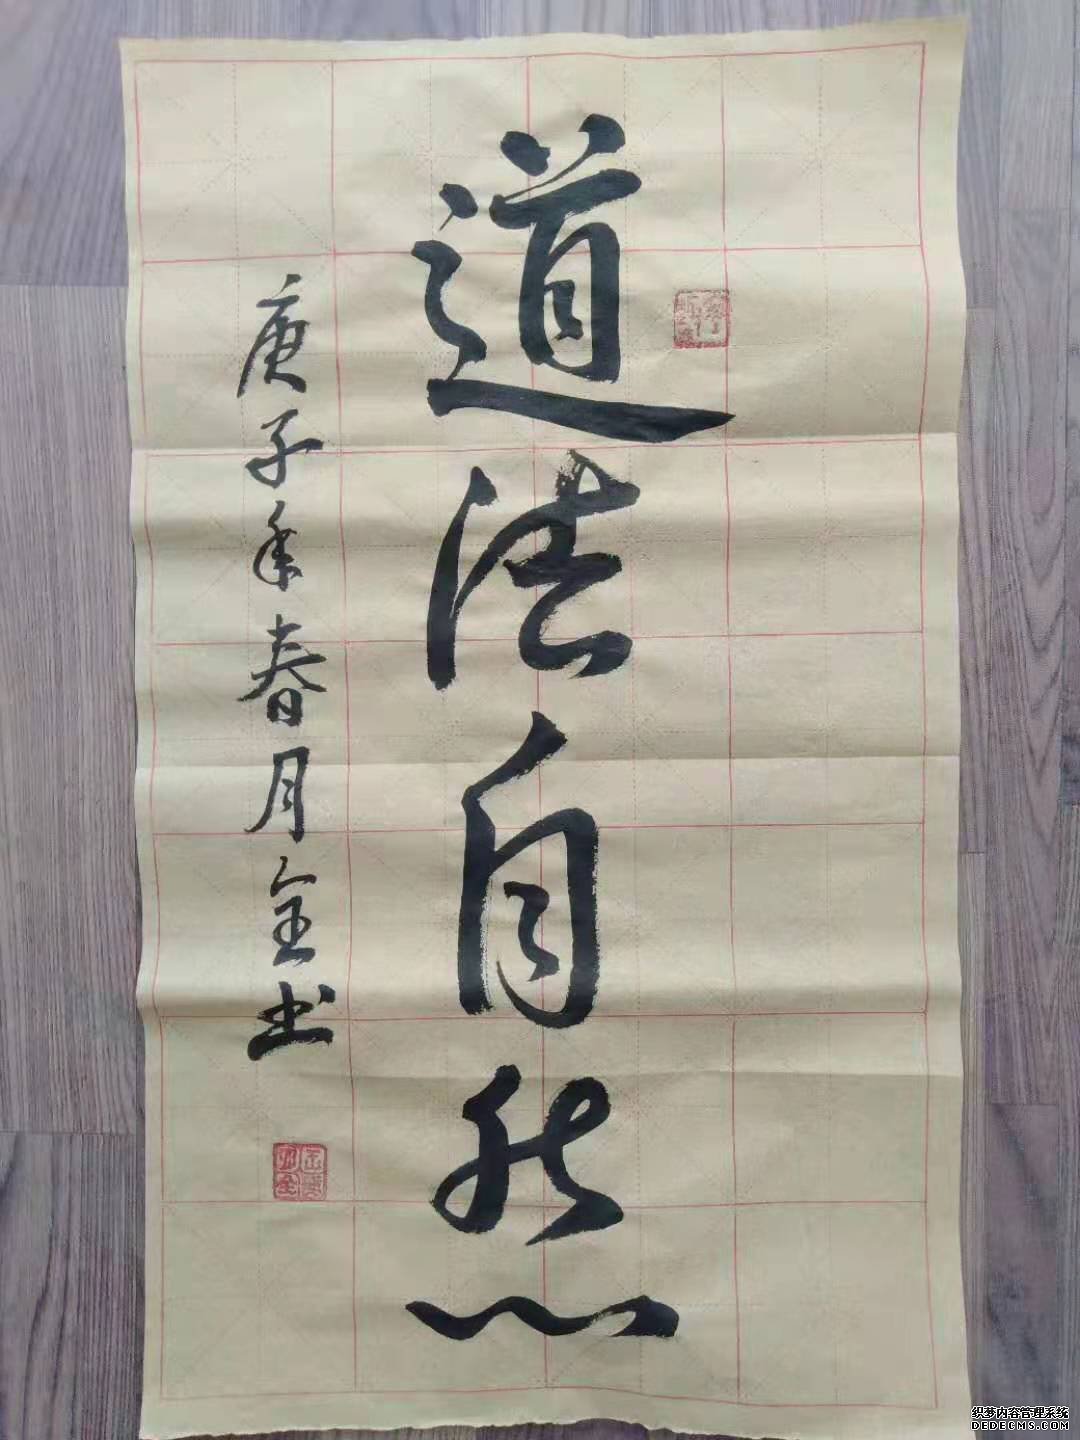 道法自然
庚子年春月金书
织梦内容管理系统
DEDECMS.COM